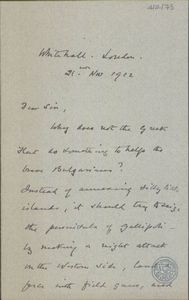 Whitehall. London.
21st Nov 1912
Dear Sir,
Why does not the Greek
Fleet do something to help the
brave Bulgarians?
Instead of annexing silly little
islands, it should try to seize
the peninsula of Gallipoli
by making a night attack
on the Western side, land
force with field guns, and